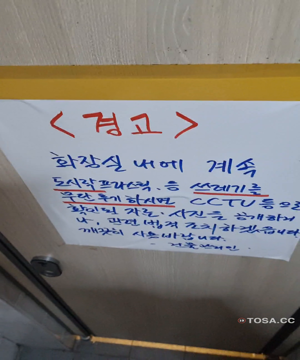 <경고>
화장실 내에 계속
도시락 프라스틱. 등 쓰레기를
무단투기하시면 CCTV 등으로
확인된 자료. 사진을 공개하거
나, 관련 법적 조치하겠습니다
깨끗히 사용바랍니다.
- 건물관리인 -
TOSA.CC